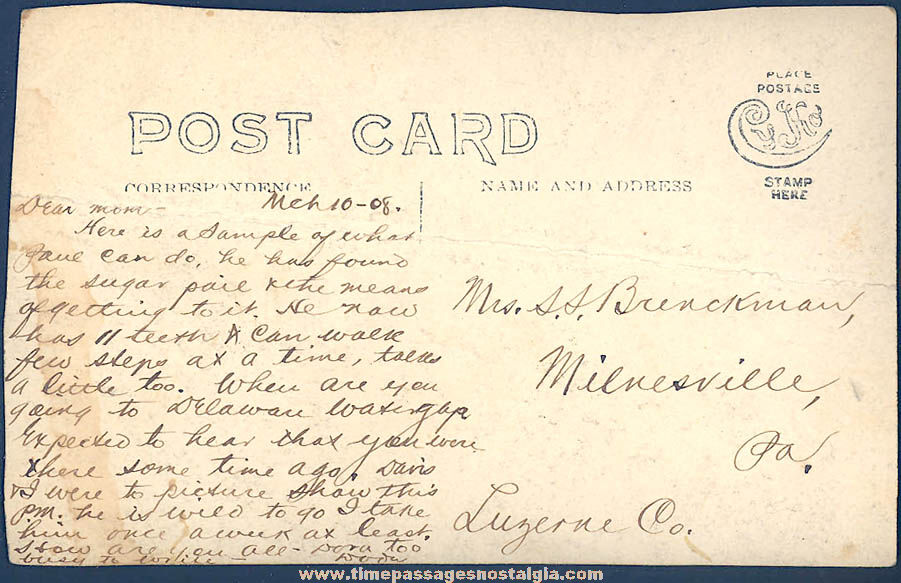 PLACE
POSTAGE
POST CARD
CYKO
STAMP
HERE
CORRESPONDENCE
NAME AND ADDRESS
Mch 10-08.
Dear mom-
Here is a sample of what
Paul can do, he has found
the sugar pail & the means
of getting to it. He now
has 11 teeth & can walk
few steps at a time, talks
a little too. When are you
going to Delaware Watergap
Expected to hear that you were
there some time ago. Davis
& I were to picture show this
P.M. he is wild to go I take
him once a week at least.
How are you all - Dora too
busy to write -
Mrs. S.S. Brenckman,
Milnesville,
Pa.
Luzerne Co.
www.timepassagesnostalgia.com